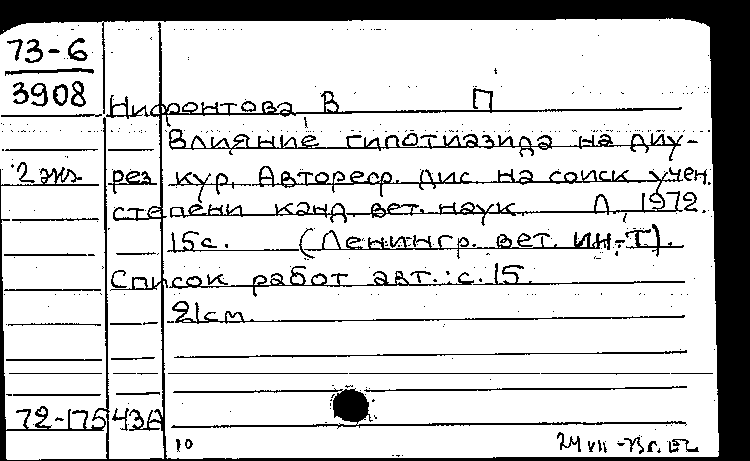 73-6
3908
Нифронтова, В П
Влияние гипотиазида на диу-
2 экз. рез кур. Автореф. дис. на соиск учен.
степени канд. вет. наук. Л., 1972.
15 с. (Ленингр. вет. ин-т).
Список работ авт.: с. 15.
21 см.
72-17543а
10
24 VII -73 г.